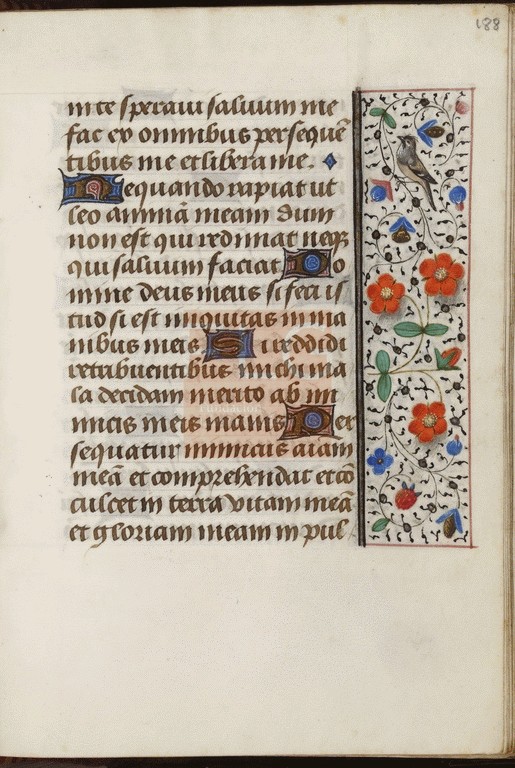 188
in te speraui saluum me
fac ex omnibus persequē
tibus me et libera me.
Nequando rapiat ut
leo animā meam dum
non est qui redimat neqꝫ
qui saluum faciat Do
mine deus meus si feci is
tud si est iniquitas in ma
nibus meis Si reddidi
retribuentibus michi ma
la decidam merito ab ini
micis meis inanis Per
sequatur inimicus aīam
meā et comprehendat et cō
culcet in terra vitam meā
et gloriam meam in pul
Fundación